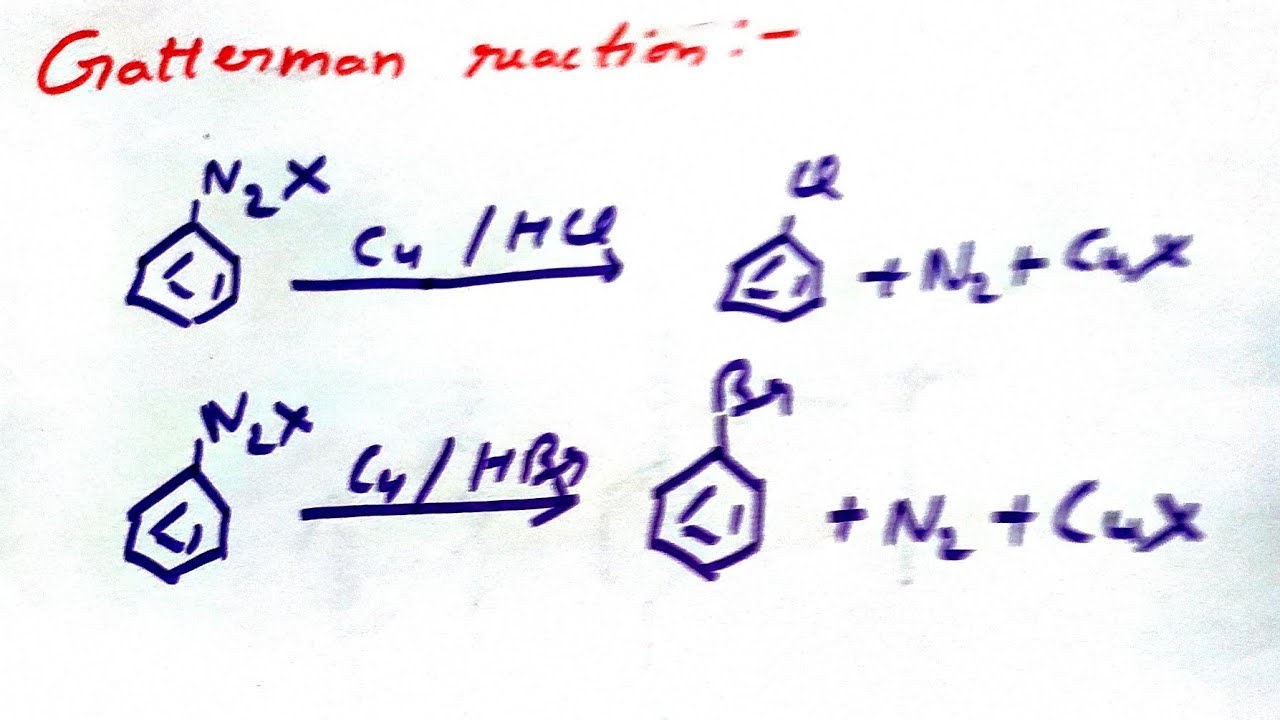 Gatterman reaction :-
N2X Cu / HCl Cl + N2 + CuX
N2X Cu / HBr Br + N2 + CuX